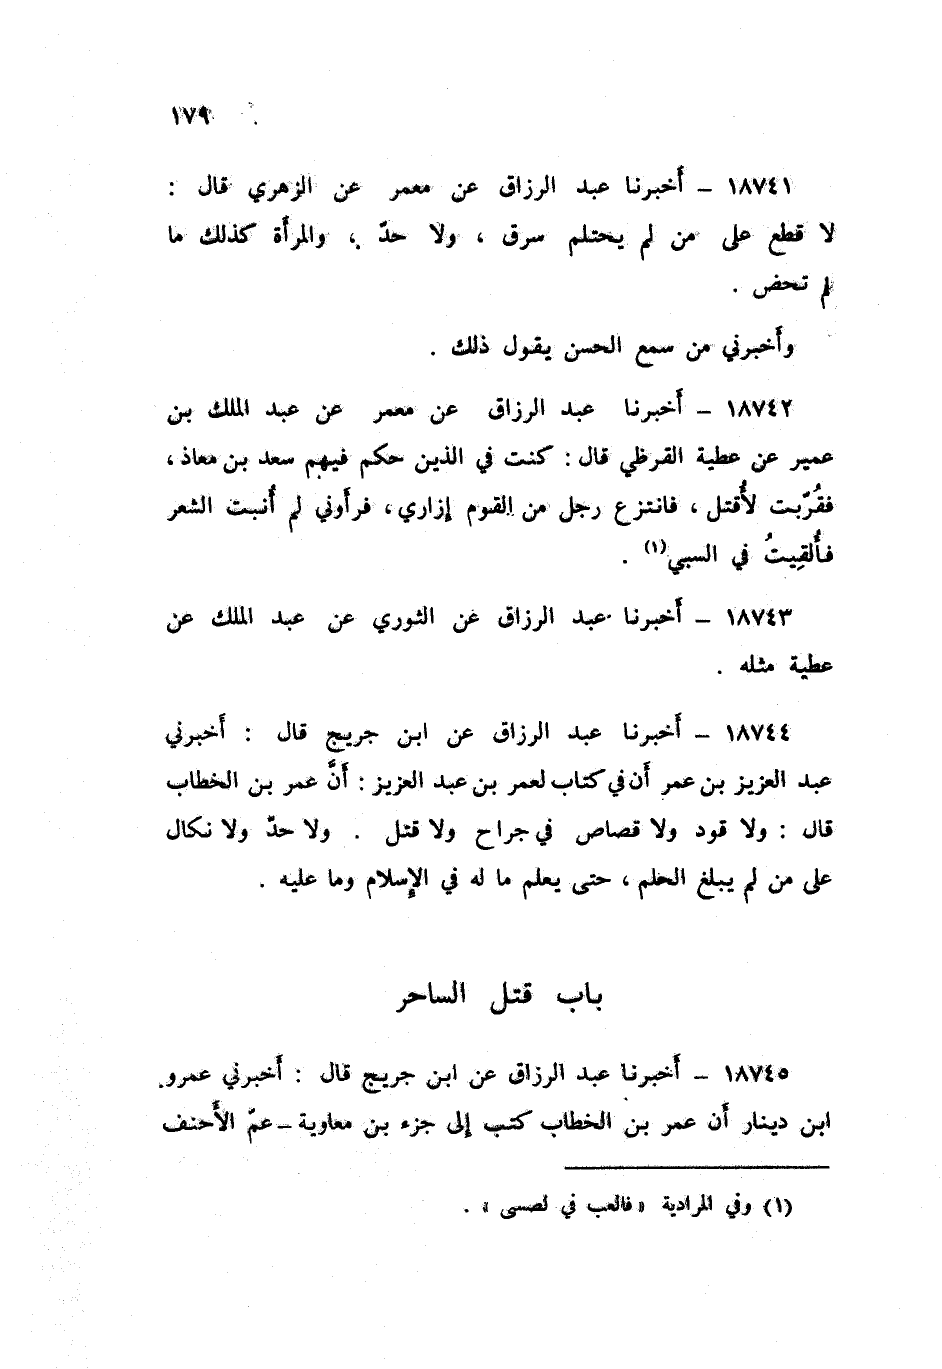 ١٧٩
١٨٧٤١ – أَخبرنا عبد الرزاق عن معمر عن الزهري قال :
لا قطع على من لم يحتلم سرق ، ولا حدّ ، والمرأَة كذلك ما
لم تحض .
وأَخبرني من سمع الحسن يقول ذلك .
١٨٧٤٢ – أَخبرنا عبد الرزاق عن معمر عن عبد الملك بن
عمير عن عطية القرظي قال : كنت في الذين حكم فيهم سعد بن معاذ ،
فقُرّبت لأُقتل ، فانتزع رجل من القوم إزاري ، فرأَوني لم أُنبت الشعر
فأُلقِيتُ في السبي(١) .
١٨٧٤٣ – أَخبرنا عبد الرزاق عن الثوري عن عبد الملك عن
عطية مثله .
١٨٧٤٤ – أَخبرنا عبد الرزاق عن ابن جريج قال : أَخبرني
عبد العزيز بن عمر أَن في كتاب لعمر بن عبد العزيز : أَنَّ عمر بن الخطاب
قال : ولا قود ولا قصاص في جراح ولا قتل . ولا حدّ ولا نكال
على من لم يبلغ الحلم ، حتى يعلم ما له في الإسلام وما عليه .
باب قتل الساحر
١٨٧٤٥ – أَخبرنا عبد الرزاق عن ابن جريج قال : أَخبرني عمرو
ابن دينار أَن عمر بن الخطاب كتب إلى جزء بن معاوية – عمّ الأَحنف
(١) وفي المرادية « فالعب في لصسى » .